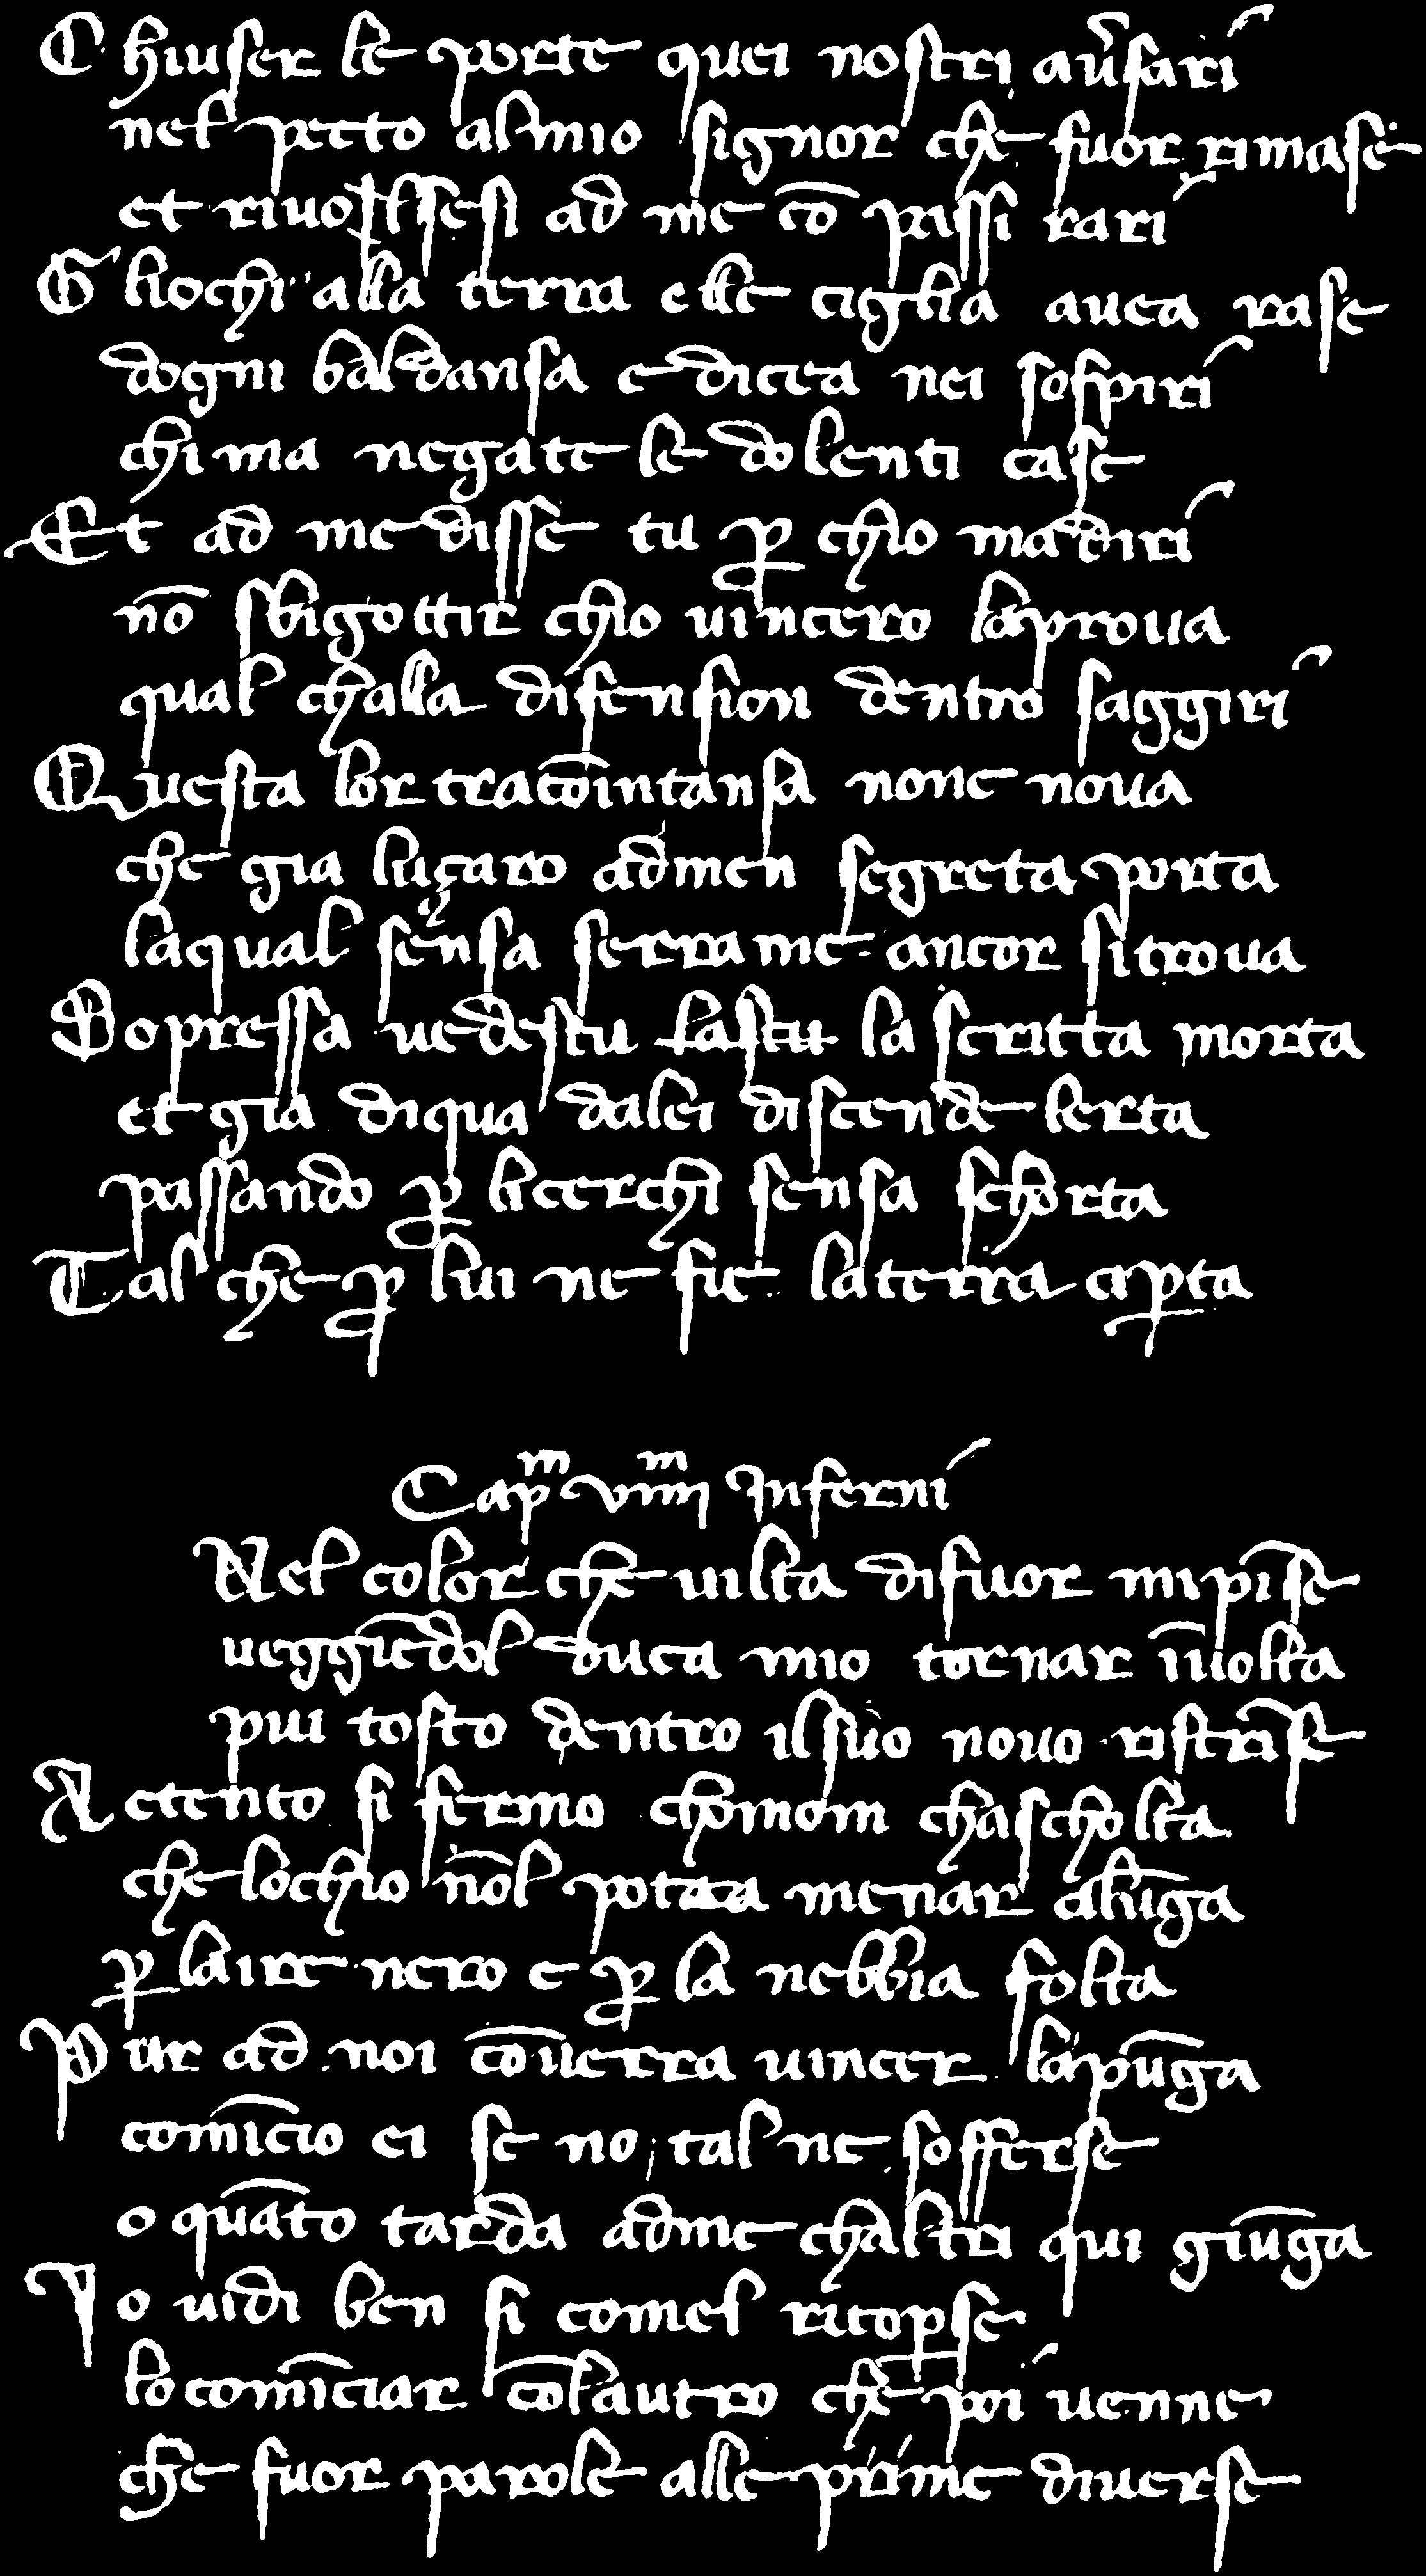 Chiuser le porte quei nostri au̅sari
nel pecto al mio signor che fuor rimase
et riuolsesi ad me co̅ passi rari
Gliochi alla terra elle ciglia auea rase
dogni baldansa e dicea nei sospiri
chi ma negate le dolenti case
Et ad me disse tu ꝑ chio madiri
no̅ sbigottir chio uincero laproua
qual challa difension dentro saggiri
Questa lor traco̅intansa none noua
che gia liuçaro admen segreta porta
laqual sensa serrame ancor sitroua
Dopressa uedestu lastu la scritta morta
et gia diqua dalei discende lerta
passando ꝑ licerchi sensa schorta
Tal che ꝑ lui ne fie laterra aꝑta
Capᵐ viiiiᵐ Inferni
Nel color che uilta difuor mipi̅se
ueggie̅dol duca mio tornar i̅uolta
piu tosto dentro ilsuo nouo ristri̅se
Actento si fermo chomom chascholta
che lochio no̅l potea menar alu̅ga
ꝑ laire nero e ꝑ la nebbia folta
Pur ad noi co̅uerra uincer lapu̅ga
comi̅cio ei se no tal ne sofferse
o qua̅to tarda adme chaltri qui giu̅ga
Io uidi ben si comel ricoꝑse
lo comi̅ciar co̅laltro che poi uenne
che fuor parole alle prime diuerse